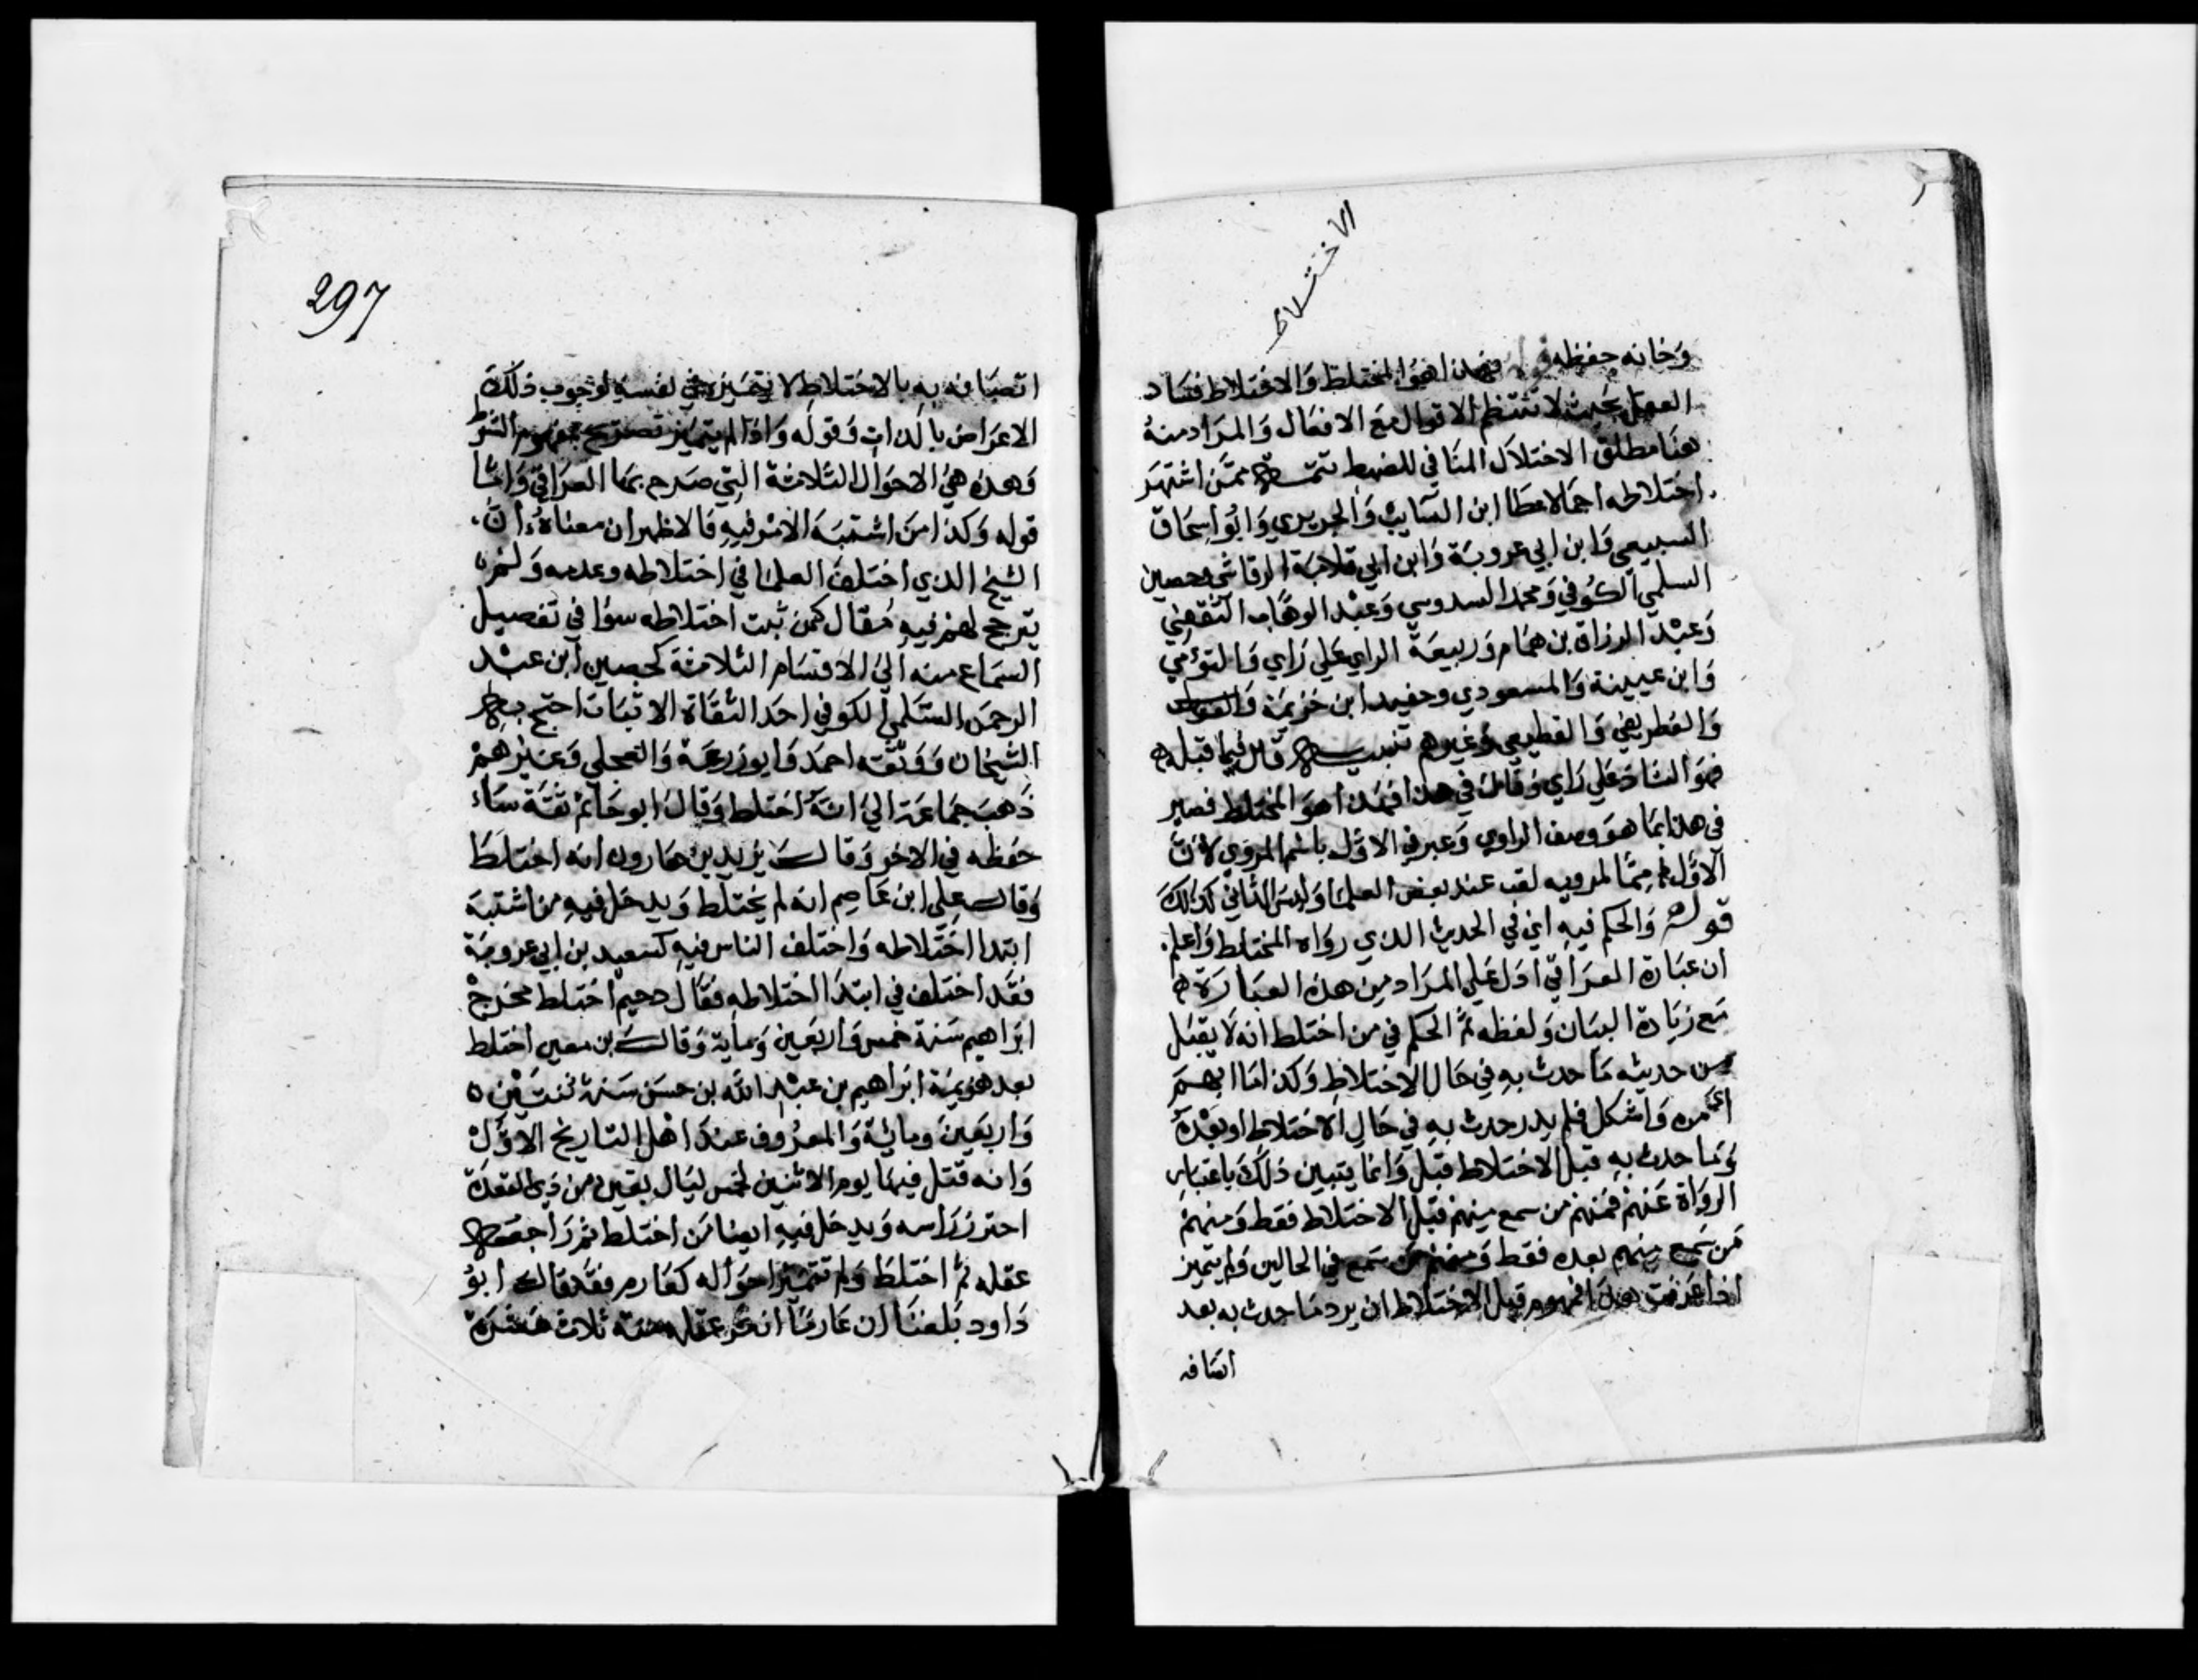 الاختلاط
وخانه حفظه فهذا هو المختلط والاختلاط فساد
العقل بحيث لا تنتظم الاقوال مع الافعال والمراد منه
هنا مطلق الاختلال المنافي للضبط تتمة ممن اشتهر
اختلاطه اجمالا عطا ابن السايب والجريري وابو اسحاق
السبيعي وابن ابي عروبة وابن ابي قلابة الرقاشي وحصين
السلمي الكوفي ومحمد السدوسي وعبد الوهاب الثقفي
وعبد الرزاق بن همام وربيعة الراي على راي والتوءمي
وابن عيينة والمسعودي وحفيد ابن خزيمة
والغطريفي والقطيعي وغيرهم تنبيه قال فيما قبله
فهو الشاذ علي راي وقال في هذا فهذا هو المختلط فصير
في هذا بما هو وصف الراوي وعبر في الاول باسم المروي لان
الاول مما لمرويه لقب عند بعض العلما وليس الثاني كذلك
قوله والحكم فيه اي في الحديث الذي رواه المختلط واعلم
ان عبارة العراقي ادل علي المراد من هذه العبارة
مع زيادة البيان ولفظه ثم الحكم في من اختلط انه لا يقبل
من حديثه ما حدث به في حال الاختلاط وكذا ما ابهم
امره واشكل فلم يدر حدث به في حال الاختلاط او بعده
وما حدث به قبل الاختلاط قبل وانما يتبين ذلك باعتبار
الرواة عنهم فمنهم من سمع منهم قبل الاختلاط فقط ومنهم
من سمع منهم بعده فقط ومنهم من سمع في الحالين ولم يتميز
اذا عرفت هذا فمفهوم قبل الاختلاط ان يرد ما حدث به بعد
اتصافه
297
اتصافه به بالاختلاط لا يتميزه في نفسه لوجوب ذلك
الاعراض بالذات وقوله واذا لم يتميز تصريح بمفهوم الشرط
وهذه هي الاحوال الثلاثة التي صرح بها العراقي واما
قوله وكذا من اشتبه الامر فيه فالاظهر ان معناه ان
الشيخ الذي اختلف العلما في اختلاطه وعدمه ولم
يترجح لهم فيه مقال كمن ثبت اختلاطه سوا في تفصيل
السماع منه الي الاقسام الثلاثة كحصين ابن عبد
الرحمن السلمي الكوفي احد الثقاة الاثبات احتج به
الشيخان ووثقه احمد وابو زرعة والعجلي وغيرهم
ذهب جماعة الي انه اختلط وقال ابو حاتم ثقة ساء
حفظه في الاخر وقال يزيد بن هارون انه اختلط
وقال علي ابن عاصم انه لم يختلط ويدخل فيه من اشتبه
ابتدا اختلاطه واختلف الناس فيه كسعيد بن ابي عروبة
فقد اختلف في ابتدا اختلاطه فقال دحيم اختلط مخرج
ابراهيم سنة خمس واربعين وماية وقال بن معين اختلط
بعد هزيمة ابراهيم بن عبد الله بن حسن سنة ثنتين
واربعين ومائة والمعروف عند اهل التاريخ الاول
وانه قتل فيها يوم الاثنين لخمس ليال بقين من ذي القعدة
احتز راسه ويدخل فيه ايضا من اختلط ثم راجعه
عقله ثم اختلط ولم تتميز احواله كعارم فقد قال ابو
داود بلغنا ان عارما انكر عقله سنة ثلاث عشرة